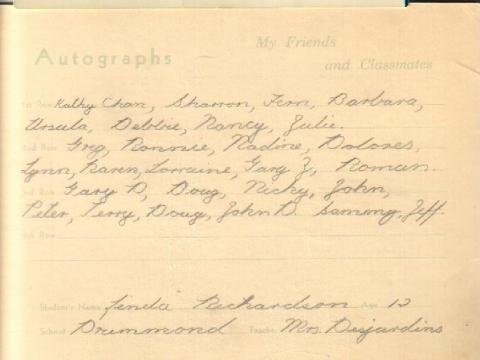 Autographs
My Friends
and Classmates
1st Row Kathy Chan, Sharron, Fern, Barbara,
Ursula, Debbie, Nancy, Julie.
2nd Row Greg, Ronnie, Nadine, Dolores,
Lynn, Karen, Lorraine, Gary Z, Roman.
3rd Row Gary D, Doug, Nicky, John,
Peter, Terry, Doug, John D. Sammy, Jeff.
4th Row
Student's Name Linda Richardson Age 12
School Drummond Teacher Mrs. Desjardins